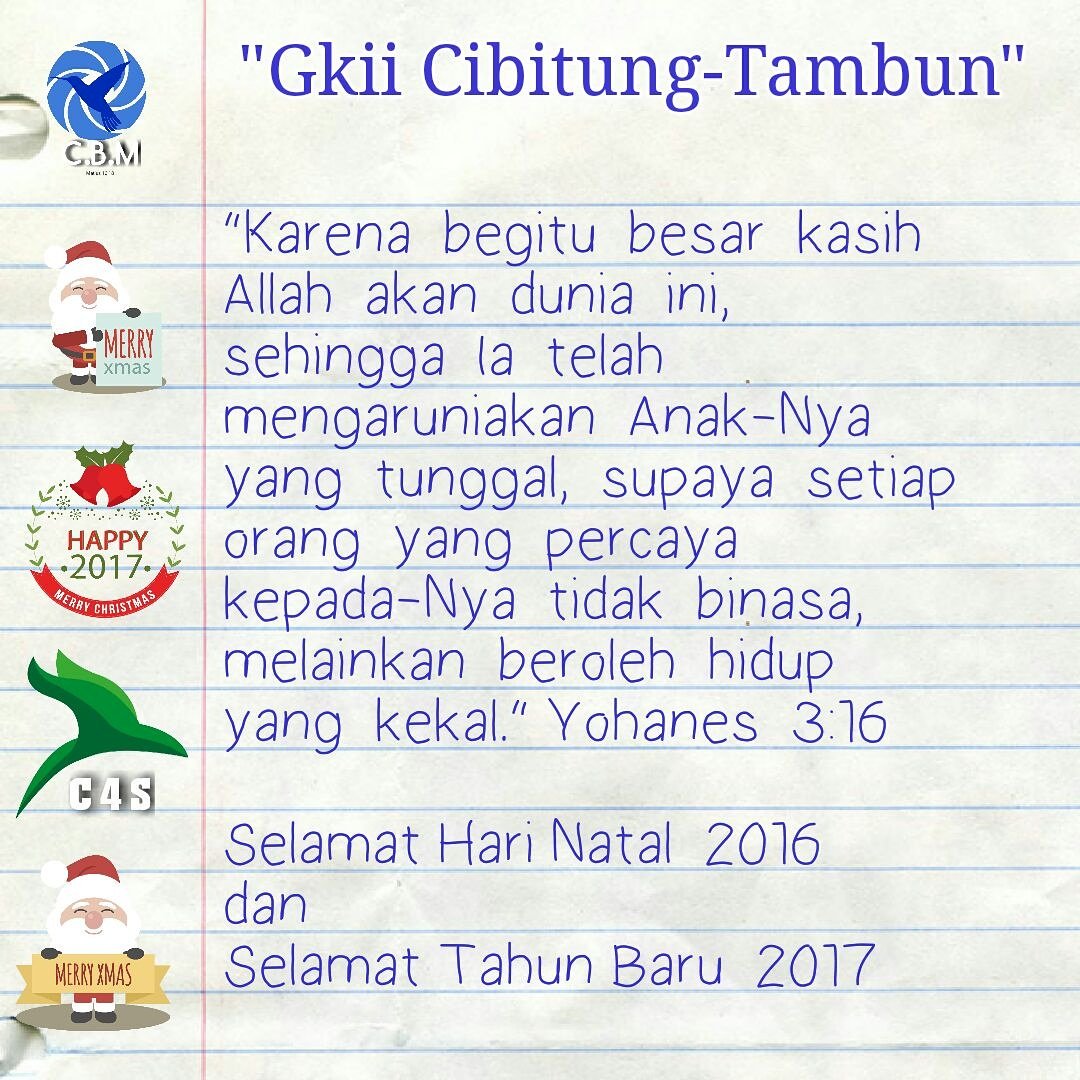 "Gkii Cibitung-Tambun"
C.B.M
"Karena begitu besar kasih
Allah akan dunia ini,
sehingga Ia telah
mengaruniakan Anak-Nya
yang tunggal, supaya setiap
orang yang percaya
kepada-Nya tidak binasa,
melainkan beroleh hidup
yang kekal." Yohanes 3:16
Selamat Hari Natal 2016
dan
Selamat Tahun Baru 2017
MERRY
xmas
HAPPY
•2017•
MERRY CHRISTMAS
C4S
MERRY XMAS